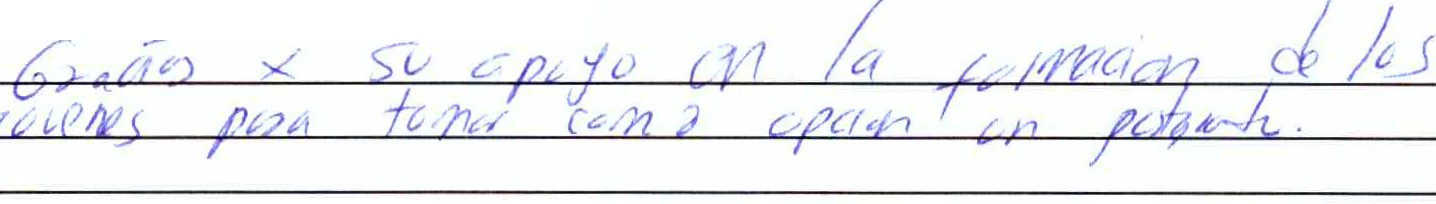 Gracias x su apoyo en la formación de los
jovenes para tomar como opción un